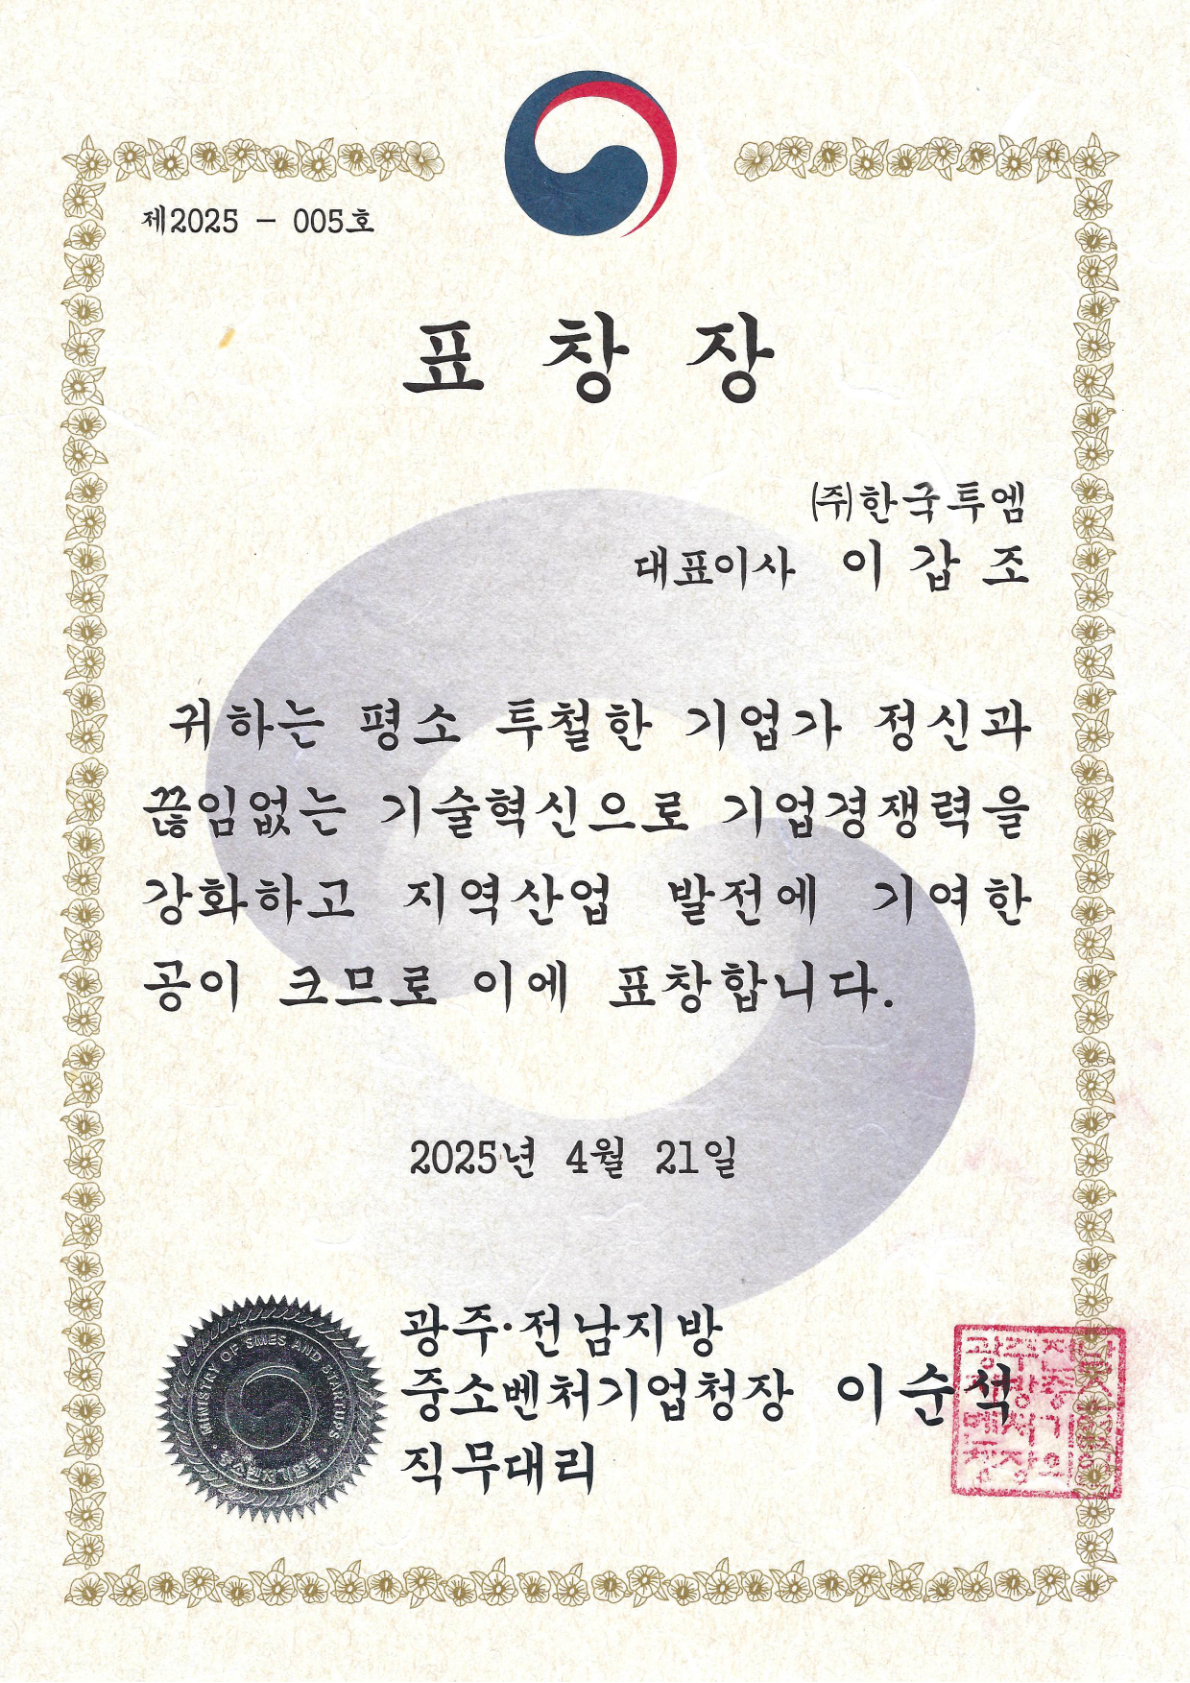 제2025 - 005호
표 창 장
㈜한국투엠
대표이사 이 갑 조
귀하는 평소 투철한 기업가 정신과
끊임없는 기술혁신으로 기업경쟁력을
강화하고 지역산업 발전에 기여한
공이 크므로 이에 표창합니다.
2025년 4월 21일
광주·전남지방
중소벤처기업청장 이순석
직무대리
MINISTRY OF SMES AND STARTUPS
중소벤처기업부